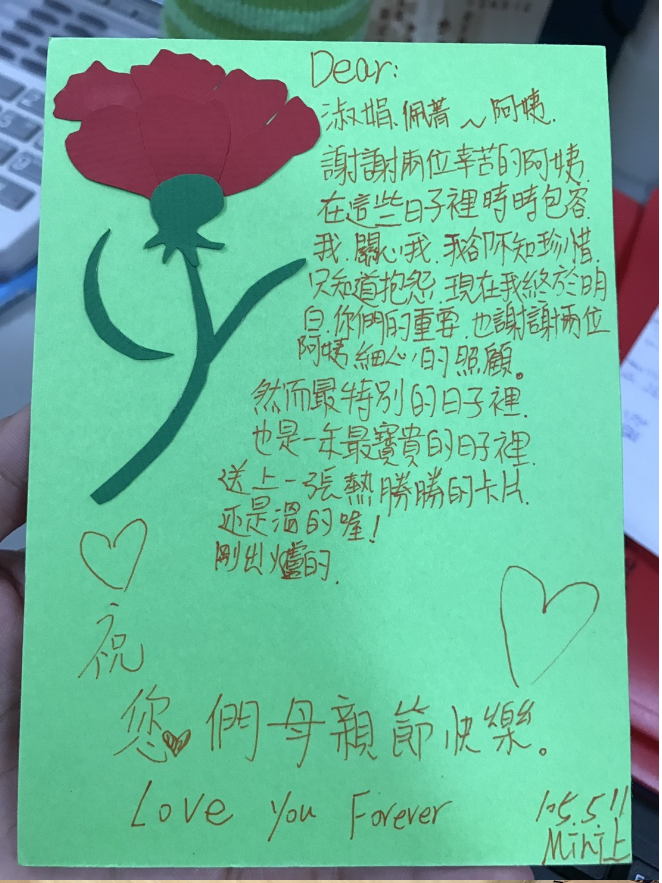 Dear:
淑娟、佩蓍～阿姨.
謝謝兩位辛苦的阿姨.
在這些日子裡時時包容.
我.關心我.我卻不知珍惜.
只知道抱怨.現在我終於明
白.你們的重要.也謝謝兩位
阿姨細心的照顧。
然而最特別的日子裡.
也是一年最寶貴的日子裡.
送上一張熱勝勝的卡片.
还是溫的喔!
剛出爐的.
祝
您們母親節快樂。
Love You Forever
105.5.11
Mini上